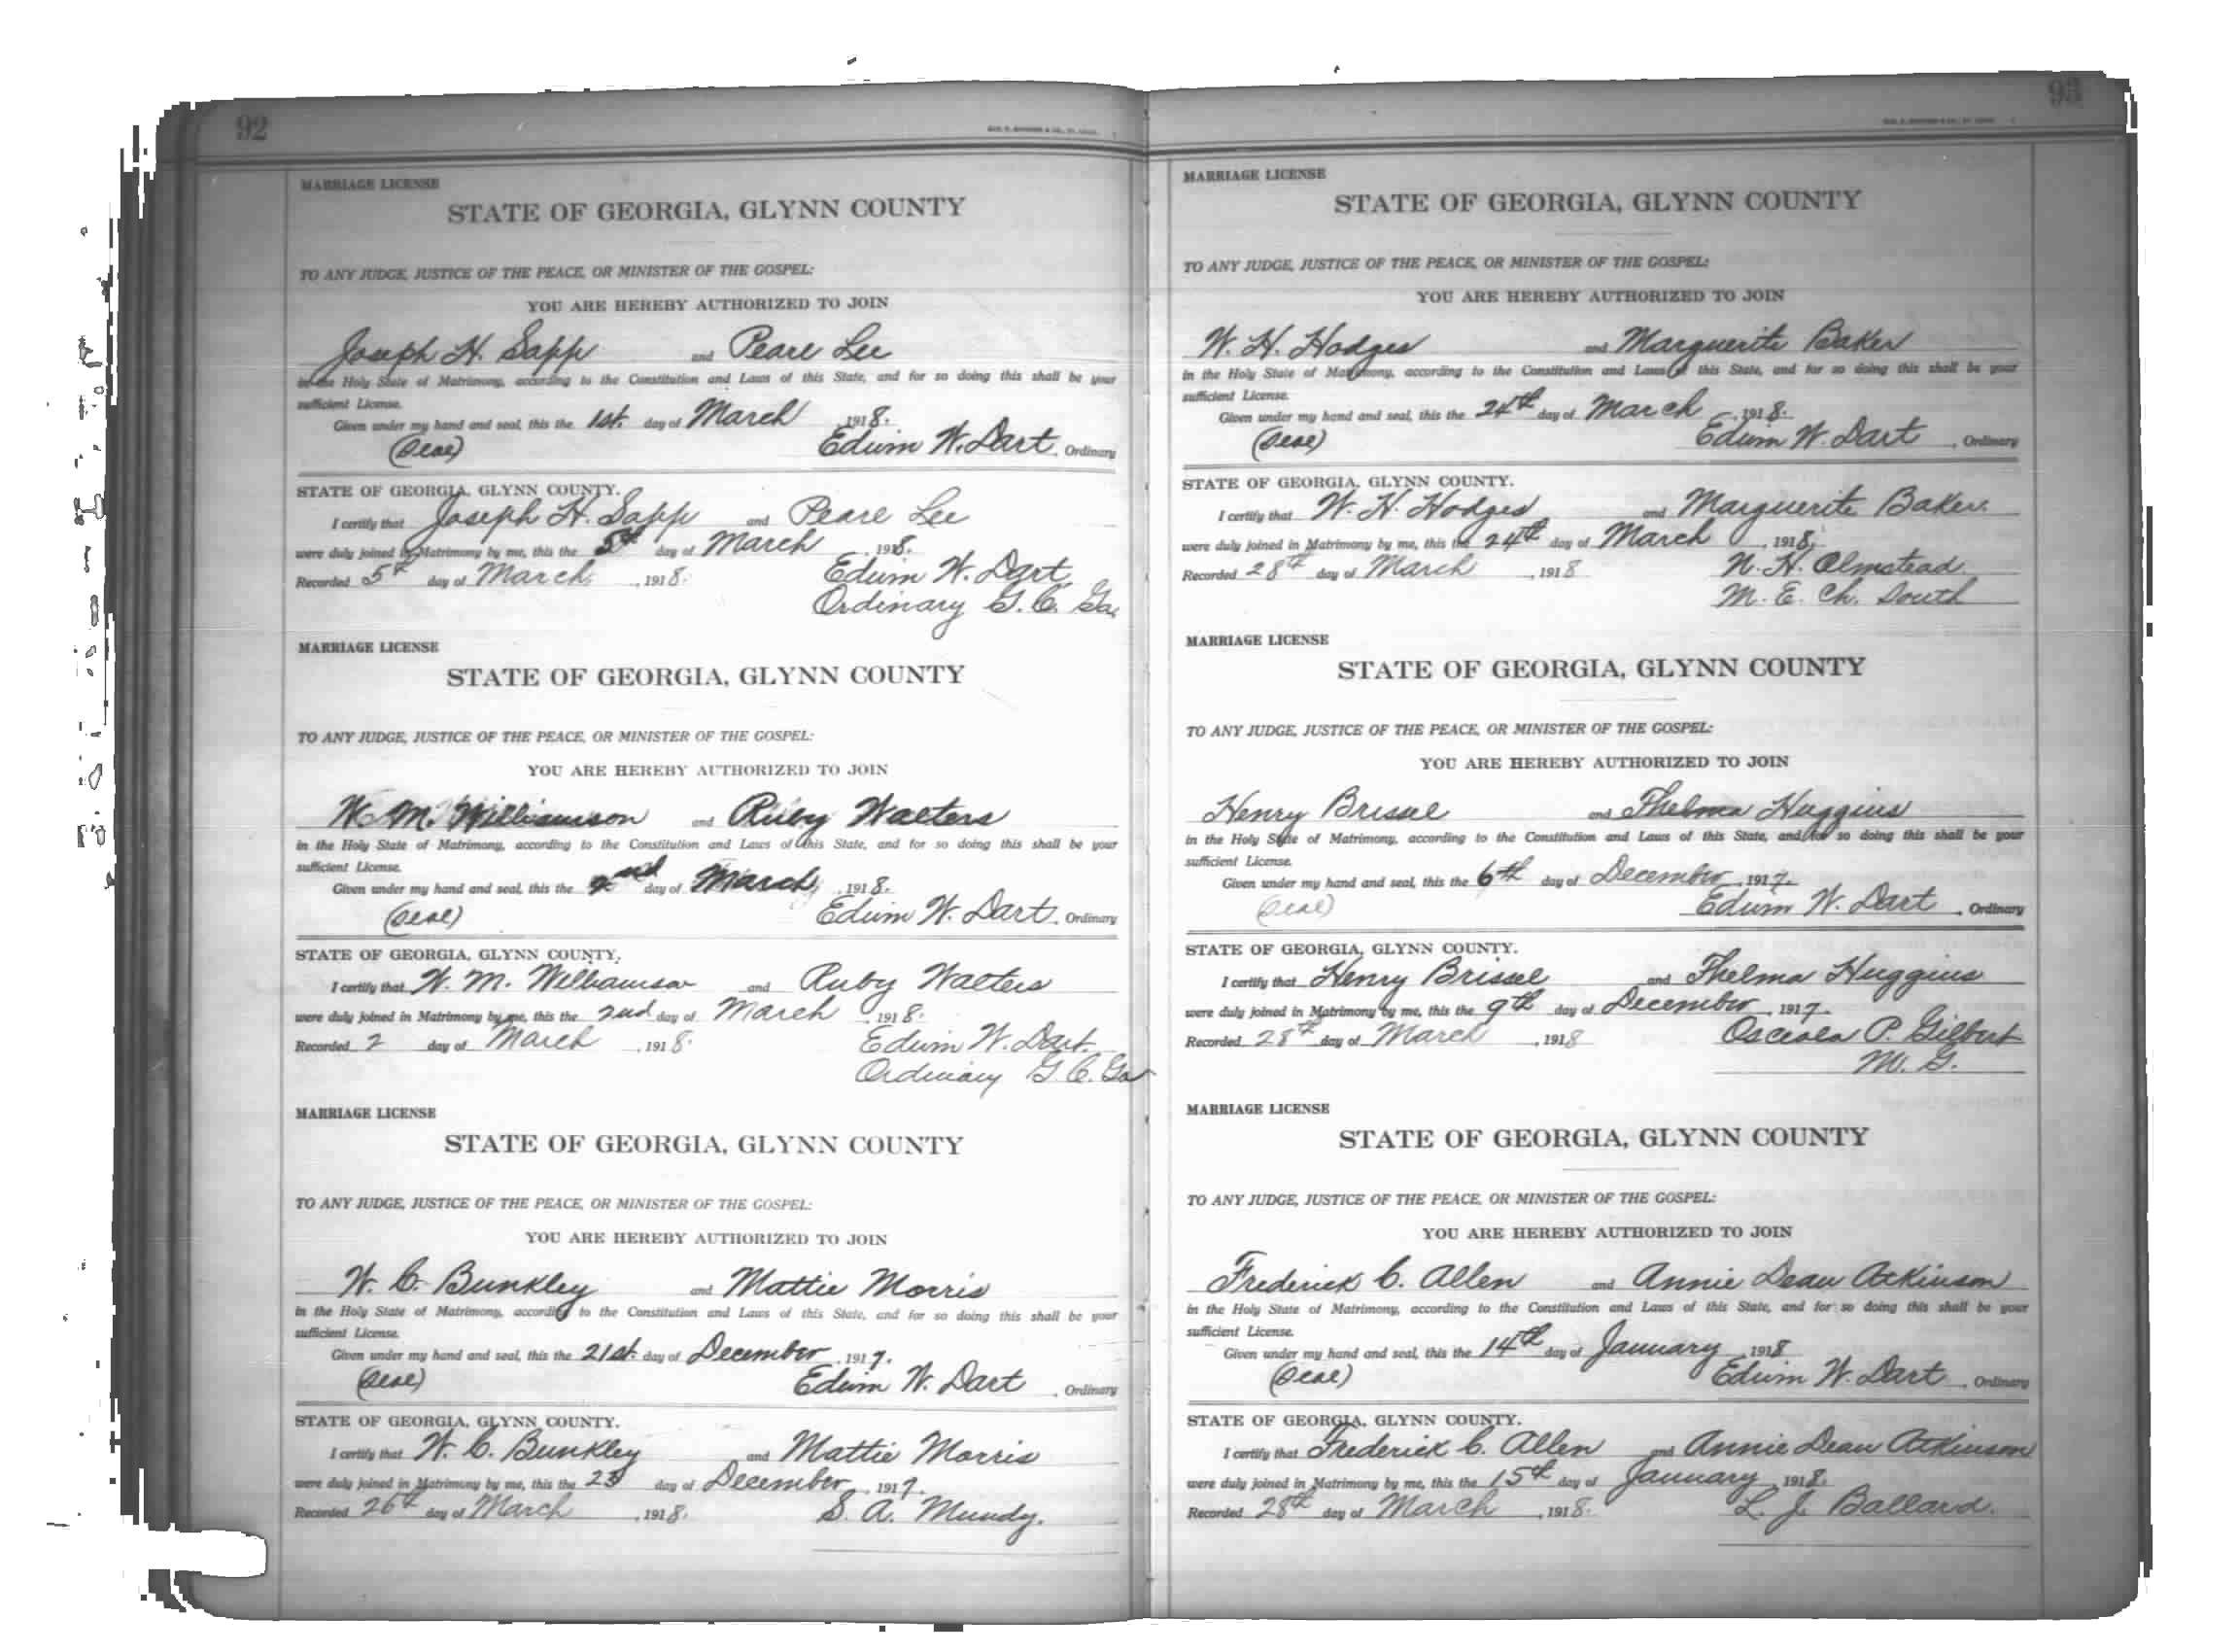 92
MARRIAGE LICENSE
STATE OF GEORGIA, GLYNN COUNTY
TO ANY JUDGE, JUSTICE OF THE PEACE, OR MINISTER OF THE GOSPEL:
YOU ARE HEREBY AUTHORIZED TO JOIN
Joseph H. Sapp and Pearl Lee
in the Holy State of Matrimony, according to the Constitution and Laws of this State, and for so doing this shall be your
sufficient License.
Given under my hand and seal, this the 1st. day of March 1918.
(Seal) Edwin W. Dart, Ordinary
STATE OF GEORGIA, GLYNN COUNTY.
I certify that Joseph H. Sapp and Pearl Lee
were duly joined in Matrimony by me, this the 5th day of March, 1918.
Recorded 5th day of March, 1918. Edwin W. Dart
Ordinary G. C. Ga.
MARRIAGE LICENSE
STATE OF GEORGIA, GLYNN COUNTY
TO ANY JUDGE, JUSTICE OF THE PEACE, OR MINISTER OF THE GOSPEL:
YOU ARE HEREBY AUTHORIZED TO JOIN
W. M. Williamson and Ruby Walters
in the Holy State of Matrimony, according to the Constitution and Laws of this State, and for so doing this shall be your
sufficient License.
Given under my hand and seal, this the 2nd day of March, 1918.
(Seal) Edwin W. Dart, Ordinary
STATE OF GEORGIA, GLYNN COUNTY.
I certify that W. M. Williamson and Ruby Walters
were duly joined in Matrimony by me, this the 2nd day of March, 1918.
Recorded 2 day of March, 1918. Edwin W. Dart.
Ordinary G. C. Ga
MARRIAGE LICENSE
STATE OF GEORGIA, GLYNN COUNTY
TO ANY JUDGE, JUSTICE OF THE PEACE, OR MINISTER OF THE GOSPEL:
YOU ARE HEREBY AUTHORIZED TO JOIN
W. C. Bunkley and Mattie Morris
in the Holy State of Matrimony, according to the Constitution and Laws of this State, and for so doing this shall be your
sufficient License.
Given under my hand and seal, this the 21st. day of December, 1917.
(Seal) Edwin W. Dart, Ordinary
STATE OF GEORGIA, GLYNN COUNTY.
I certify that W. C. Bunkley and Mattie Morris
were duly joined in Matrimony by me, this the 23 day of December, 1917.
Recorded 26th day of March, 1918. S. A. Mundy.
93
MARRIAGE LICENSE
STATE OF GEORGIA, GLYNN COUNTY
TO ANY JUDGE, JUSTICE OF THE PEACE, OR MINISTER OF THE GOSPEL:
YOU ARE HEREBY AUTHORIZED TO JOIN
W. H. Hodges and Marguerite Baker
in the Holy State of Matrimony, according to the Constitution and Laws of this State, and for so doing this shall be your
sufficient License.
Given under my hand and seal, this the 24th day of March, 1918.
(Seal) Edwin W. Dart, Ordinary
STATE OF GEORGIA, GLYNN COUNTY.
I certify that W. H. Hodges and Marguerite Baker.
were duly joined in Matrimony by me, this the 24th day of March, 1918.
Recorded 28th day of March, 1918 N. H. Olmstead.
M. E. Ch. South
MARRIAGE LICENSE
STATE OF GEORGIA, GLYNN COUNTY
TO ANY JUDGE, JUSTICE OF THE PEACE, OR MINISTER OF THE GOSPEL:
YOU ARE HEREBY AUTHORIZED TO JOIN
Henry Brissel and Thelma Huggins
in the Holy State of Matrimony, according to the Constitution and Laws of this State, and for so doing this shall be your
sufficient License.
Given under my hand and seal, this the 6th day of December, 1917.
(Seal) Edwin W. Dart, Ordinary
STATE OF GEORGIA, GLYNN COUNTY.
I certify that Henry Brissel and Thelma Huggins
were duly joined in Matrimony by me, this the 9th day of December, 1917.
Recorded 28th day of March, 1918 Osceola P. Gilbert
M. G.
MARRIAGE LICENSE
STATE OF GEORGIA, GLYNN COUNTY
TO ANY JUDGE, JUSTICE OF THE PEACE, OR MINISTER OF THE GOSPEL:
YOU ARE HEREBY AUTHORIZED TO JOIN
Frederick C. Allen and Annie Dean Atkinson
in the Holy State of Matrimony, according to the Constitution and Laws of this State, and for so doing this shall be your
sufficient License.
Given under my hand and seal, this the 14th day of January, 1918
(Seal) Edwin W. Dart, Ordinary
STATE OF GEORGIA, GLYNN COUNTY.
I certify that Frederick C. Allen and Annie Dean Atkinson
were duly joined in Matrimony by me, this the 15th day of January, 1918.
Recorded 28th day of March, 1918. L. J. Ballard.